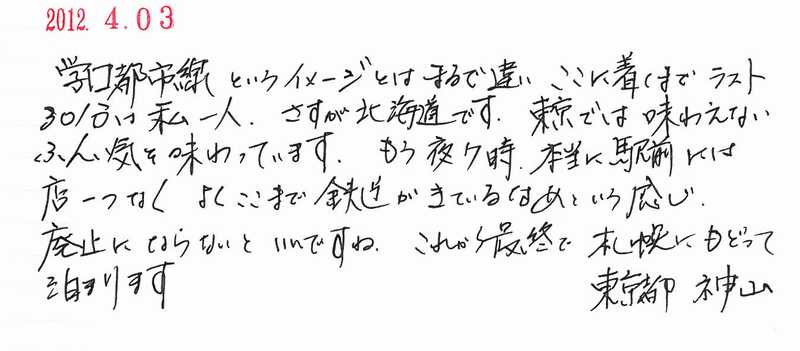 2012. 4. 03
学園都市線 というイメージとはまるで違い ここに着くまで ラスト
30分は 私一人. さすが北海道です. 東京では 味わえない
ふんい気を味わっています. もう夜7時. 本当に駅前には
店一つなく よくここまで 鉄道がきているなあという感じ.
廃止にならないと いいですね. これから最終で 札幌にもどって
泊まります 東京都 神山